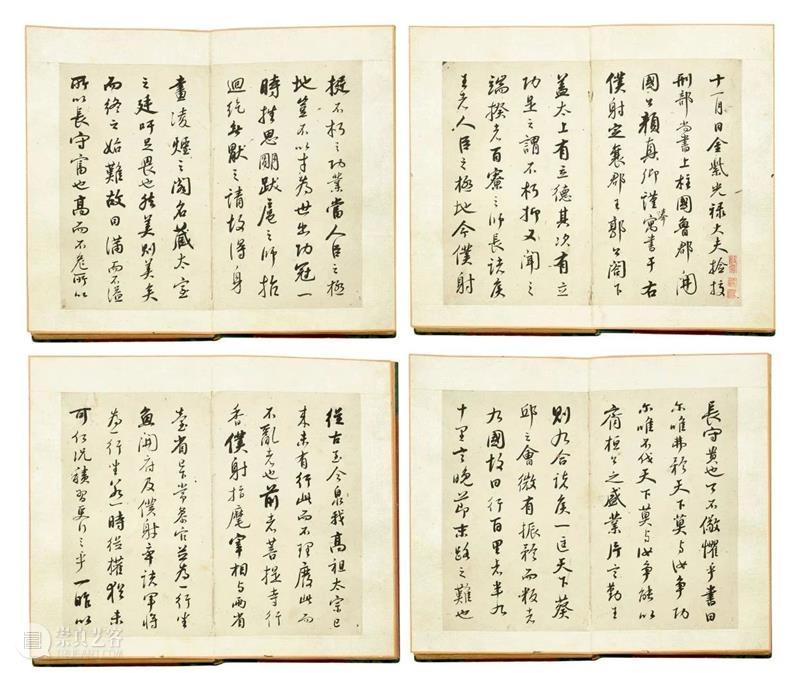 十一月日金紫光禄大夫捡挍
刑部尚書上柱國魯郡開
國公顔真卿謹奉寓書于右
僕射定襄郡王郭公閤下
蓋太上有立德其次有立
功是之謂不朽抑又聞之
端揆者百寮之師長諸侯
王者人臣之極地今僕射
挺不朽之功業當人臣之極
地豈不以才為世出功冠一
時挫思明跋扈之師抗
迴紇無厭之請故得身
畫凌煙之閣名藏太室
之廷吁足畏也然美則美矣
而終之始難故曰滿而不溢
所以長守富也高而不危所以
長守貴也可不儆懼乎書曰
尔唯弗矜天下莫与汝争功
尔唯不伐天下莫与汝争能以
齊桓公之盛業片言勤王
則九合諸侯一匡天下葵
邱之會微有振矜而叛者
九國故曰行百里者半九
十里言晚節末路之難也
從古至今泉我高祖太宗已
來未有行此而不理廢此而
不亂者也前者菩提寺行
香僕射指麾宰相与兩省
臺省常參官並為一行坐
魚開府及僕射率諸軍將
為一行坐若一時從權猶未
可何況積習更行之乎一昨以
崇真艺客